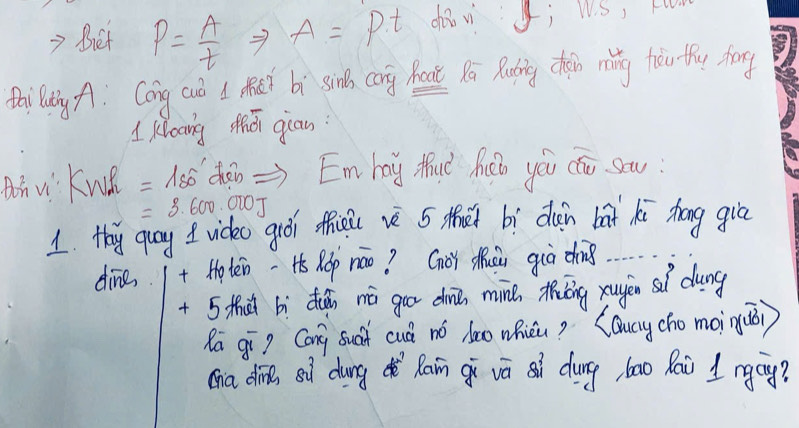 → Biết P = A/t ⇒ A = P.t đơn vị : J; W.S; KW.h
Đại lượng A : Công của 1 thiết bị sinh công hoặc là lượng điện năng tiêu thụ trong
1 khoảng thời gian :
Đơn vị: KWh = 1 số điện ⇒ Em hãy thực hiện yêu cầu sau :
= 3.600.000J
1. Hãy quay 1 video giới thiệu về 5 thiết bị điện bất kì trong gia
đình
+ Họ tên - Hs lớp nào ? Giới thiệu gia đình ..........
+ 5 thiết bị điện mà gia đình mình thường xuyên sử dụng
là gì ? Công suất của nó bao nhiêu ? (Quay cho mọi người)
Gia đình sử dụng để làm gì và sử dụng bao lâu 1 ngày?